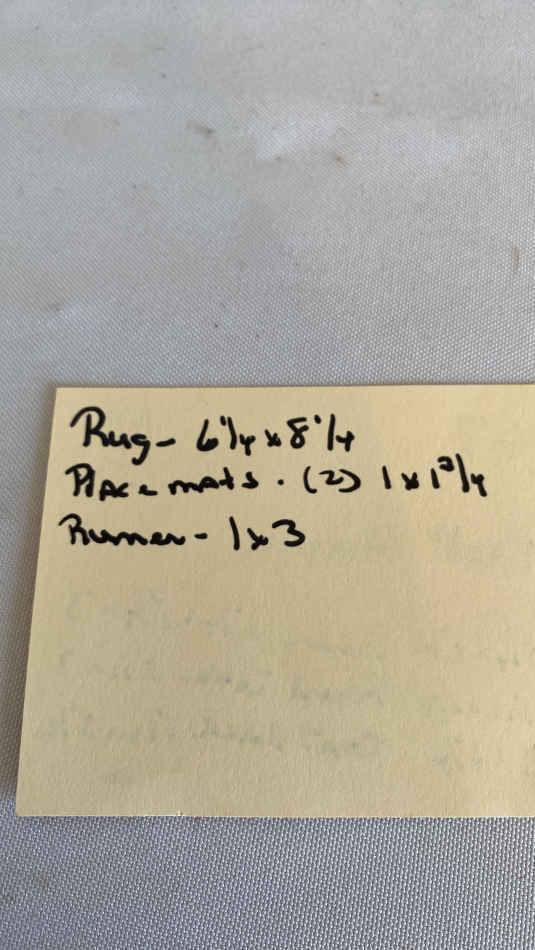 Rug - 6 1/4 x 8 1/4
Placemats . (2) 1 x 1 3/4
Runner - 1 x 3